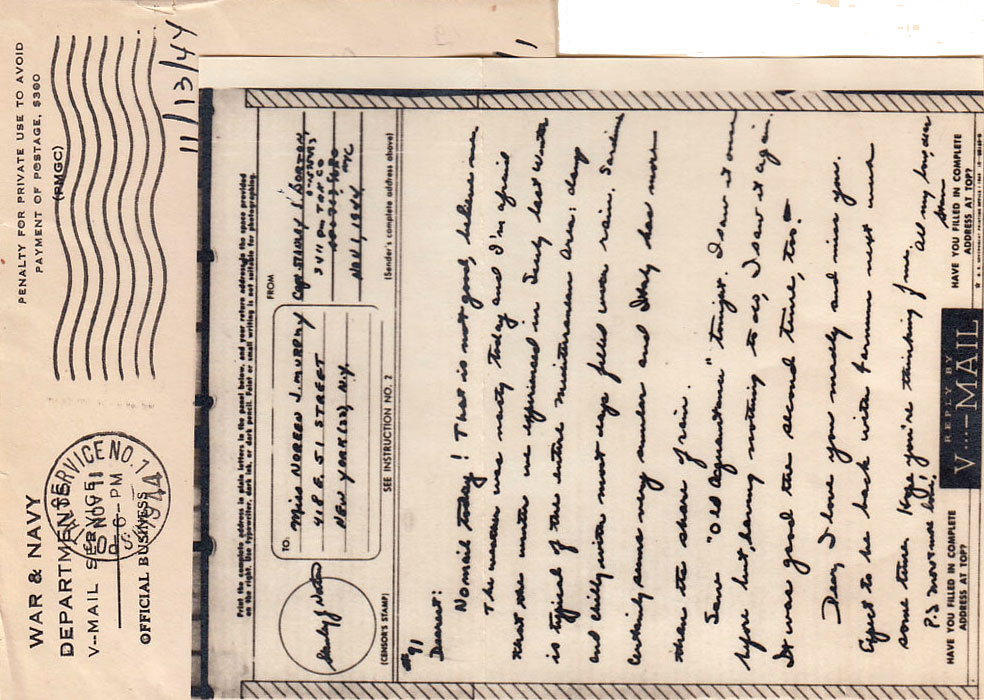 WAR & NAVY
DEPARTMENTS
V--MAIL SERVICE
OFFICIAL BUSINESS
SERVICE NO. 1
NOV 9
6-PM
1944
PENALTY FOR PRIVATE USE TO AVOID
PAYMENT OF POSTAGE, $300
(PMGC)
11/13/44
Print the complete address in plain letters in the panel below, and your return address in the space provided
on the right. Use typewriter, dark ink, or dark pencil. Faint or small writing is not suitable for photographing.
(CENSOR'S STAMP)
TO:
Miss NOREEN J. MURPHY
418 E. 51 STREET
NEW YORK (22), N.Y.
SEE INSTRUCTION NO. 2
FROM
Capt STANLEY NORTON
3411 ORD
NOV 1, 1944
(Sender's complete address above)
#91
Dearest:
No mail today! That is not good, believe me
The weather was nasty today and I'm afraid
that the winter we experienced in Italy last winter
is typical of the entire Mediterranean area: damp
and chilly with most days filled with rain. Sardinia
certainly seems very similar and Italy has more
than the share of rain.
Saw "Old Acquaintance" tonight. I saw it once
before but, having nothing to do, I saw it again.
It was good the second time, too.
Dear, I love you and miss you.
Expect to be back with next week
some time. Hope you're thinking of me.
All my love, dear
P.S.
HAVE YOU FILLED IN COMPLETE
ADDRESS AT TOP?
REPLY BY
V---MAIL
HAVE YOU FILLED IN COMPLETE
ADDRESS AT TOP?